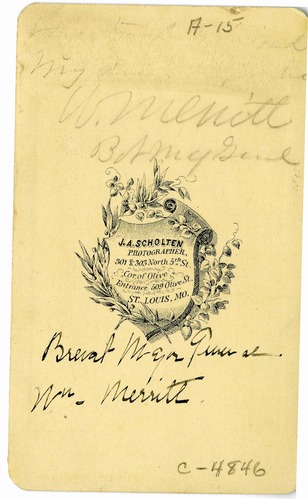 A-15
My
W. Merritt
Bvt Maj Genl
J. A. SCHOLTEN
PHOTOGRAPHER,
301 & 303 North 5th St.
Cor. of Olive
Entrance 509 Olive St.
ST. LOUIS, MO.
Brevet Major General
Wm. Merritt.
C-4846